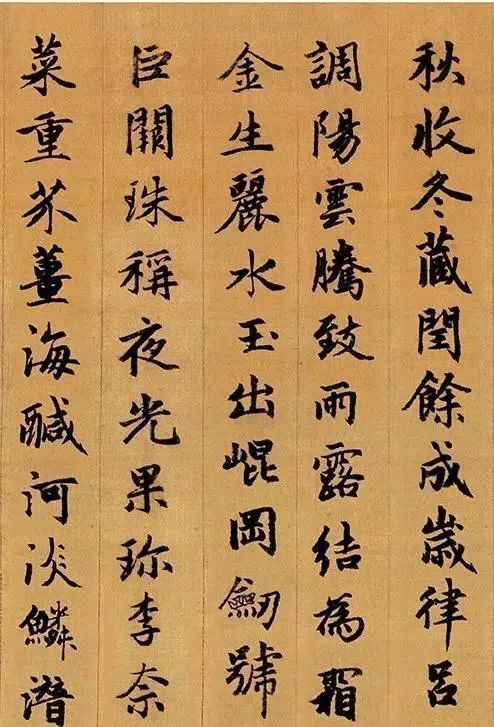 秋收冬藏閏餘成歲律呂
調陽雲騰致雨露結為霜
金生麗水玉出崐岡劒號
巨闕珠稱夜光果珎李柰
菜重芥薑海醎河淡鱗潛